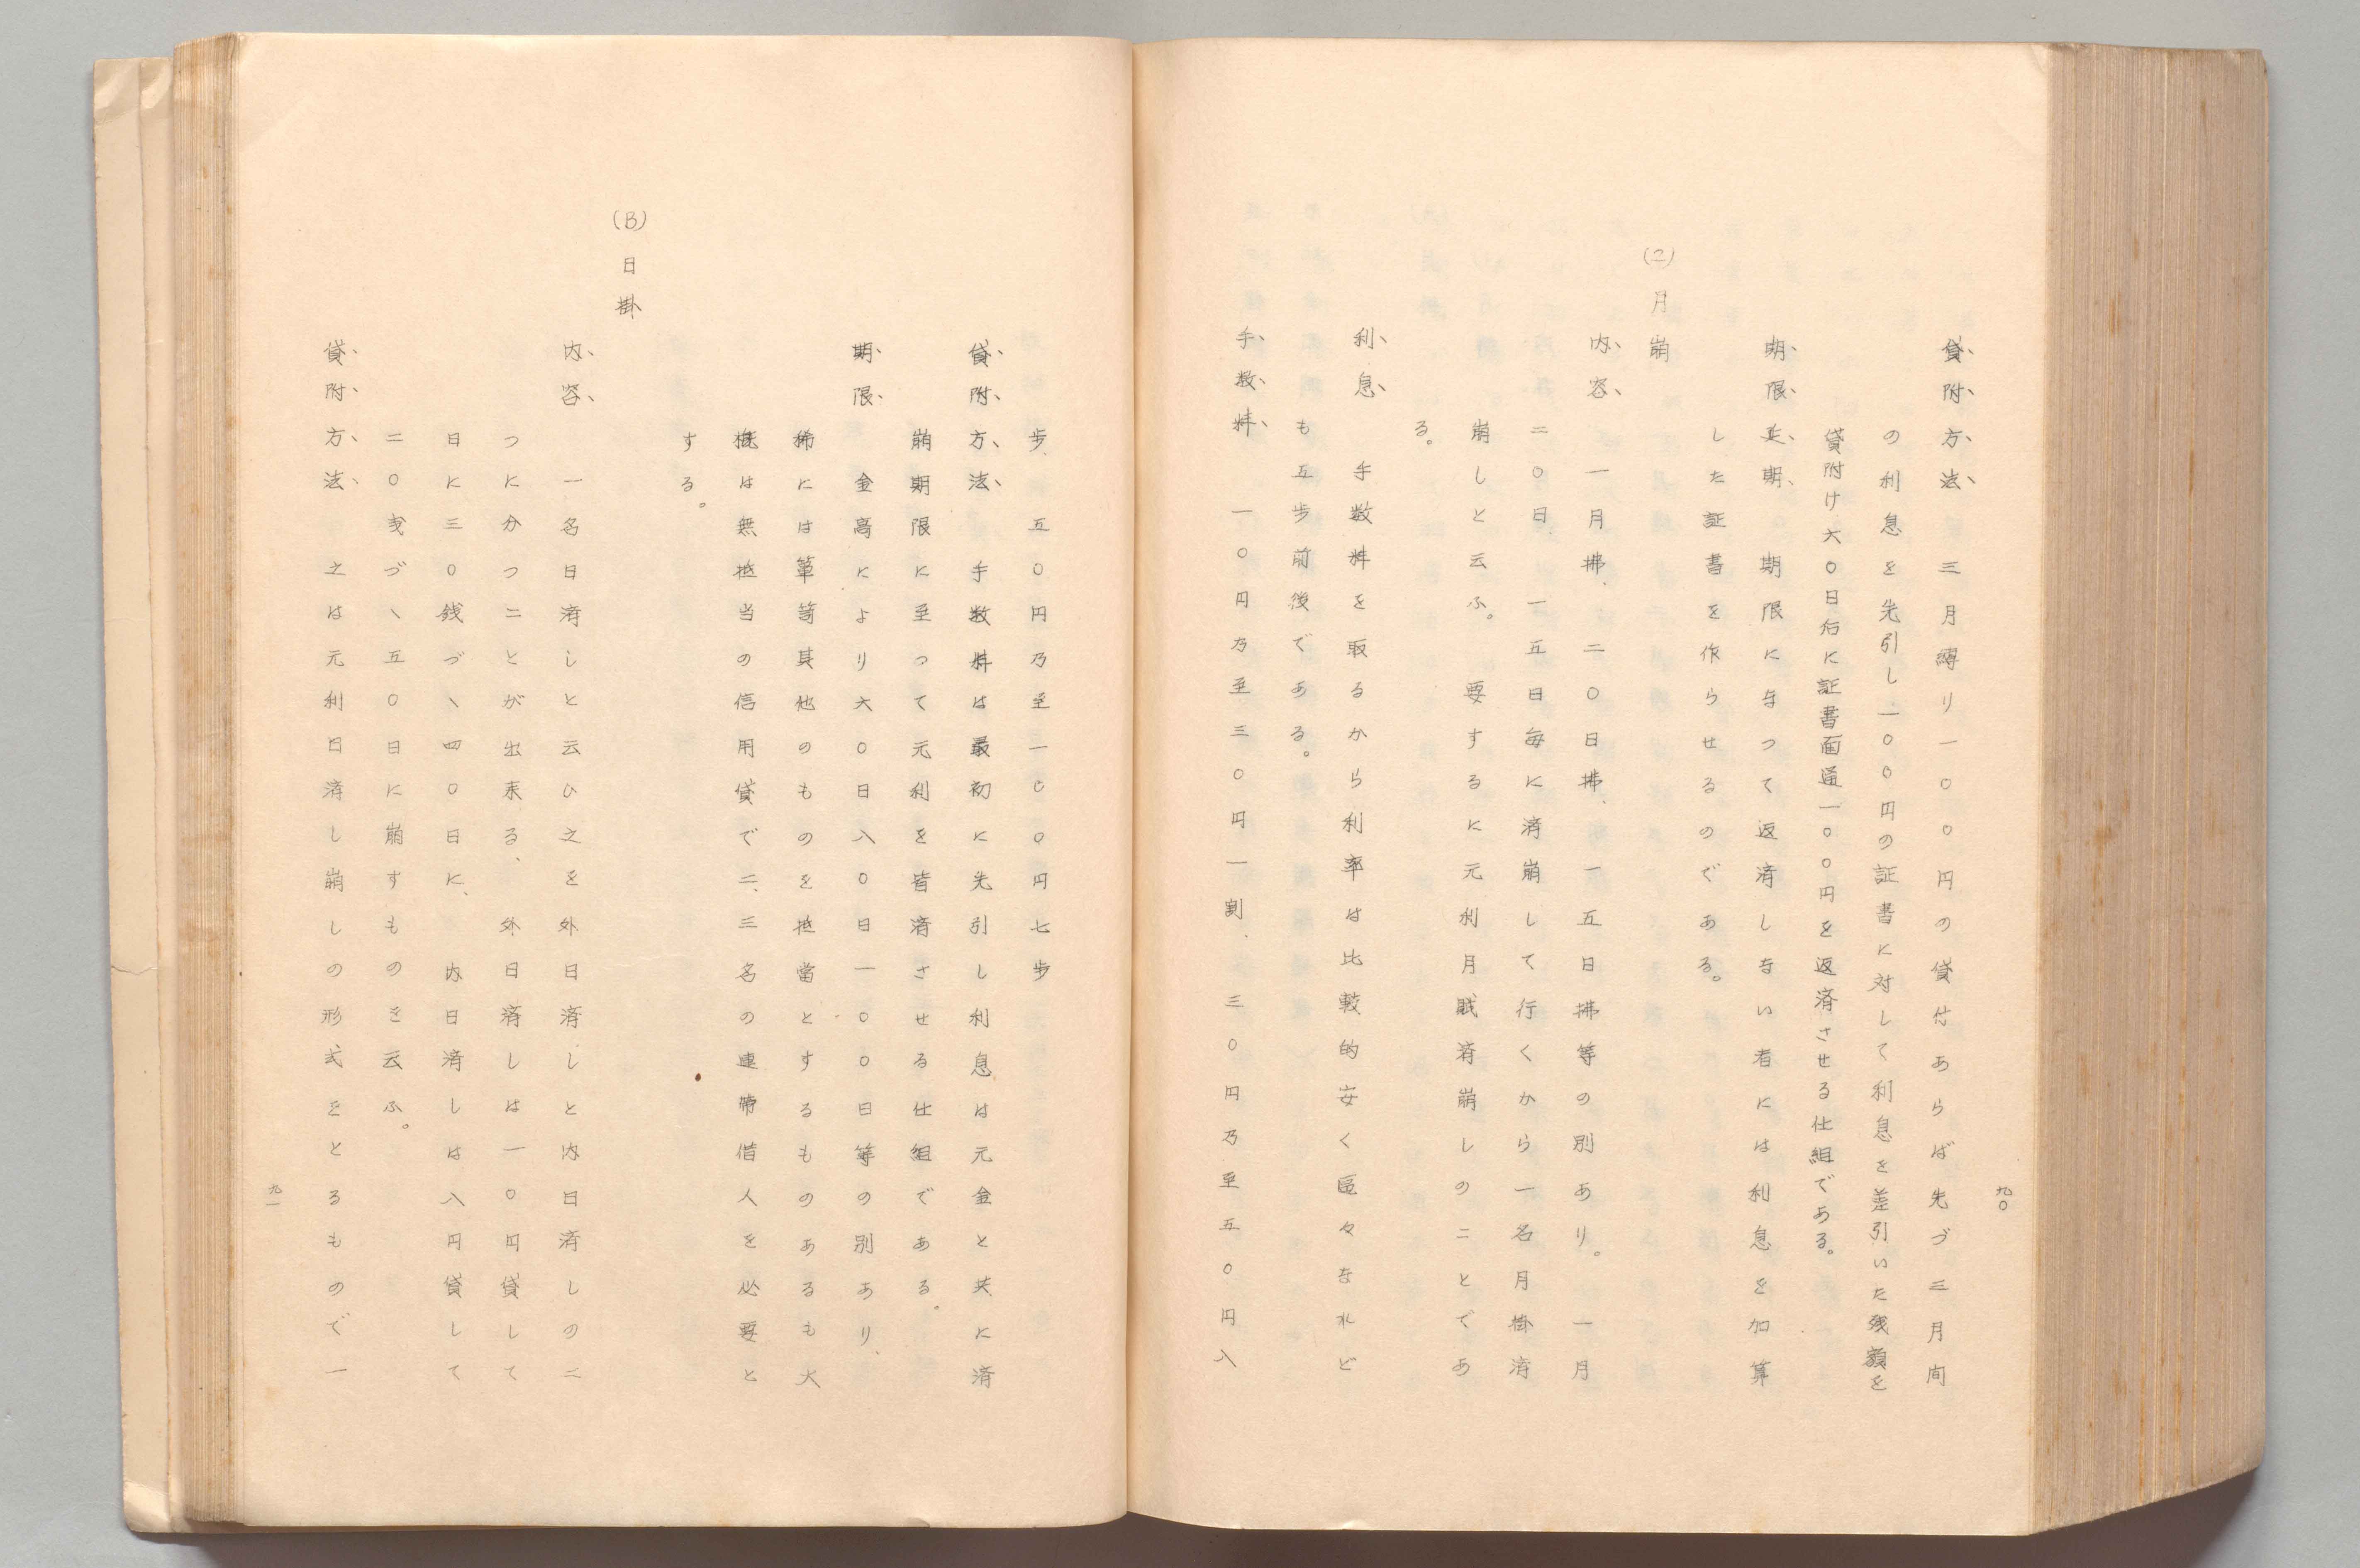 九〇
貸附方法　三月縛リ一〇〇円の貸付あらば先づ三月間
の利息を先引し一〇〇円の証書に対して利息を差引いた残額を
貸附け六〇日后に証書面通一〇〇円を返済させる仕組である。
期限延期、　期限に与つて返済しない者には利息を加算
した証書を作らせるのである。
(2)月崩
内容　一月拂、二〇日拂、一五日拂等の別あり。一月
二〇日、一五日毎に済崩して行くから一名月掛済
崩しと云ふ。　要するに元利月賦済崩しのことであ
る。
利息　手数料を取るから利率は比較的安く区々なれど
も五歩前後である。
手数料、一〇円乃至三〇円一割、三〇円乃至五〇円八
歩、五〇円乃至一〇〇円七歩
貸附方法　手数料は最初に先引し利息は元金と共に済
崩期限に至つて元利を皆済させる仕組である。
期限　金高により六〇日八〇日一〇〇日等の別あり、
稀には箪笥其他のものを抵當とするものあるも大
概は無抵当の信用貸で二、三名の連帯借人を必要と
する。
(B)日掛
内容　一名日済しと云ひ之を外日済しと内日済しの二
つに分つことが出来る、　外日済しは一〇円貸して
日に三〇銭づヽ四〇日に、　内日済しは八円貸して
二〇戔づヽ五〇日に崩すものを云ふ。
貸附方法　之は元利日済し崩しの形式をとるもので一
九一